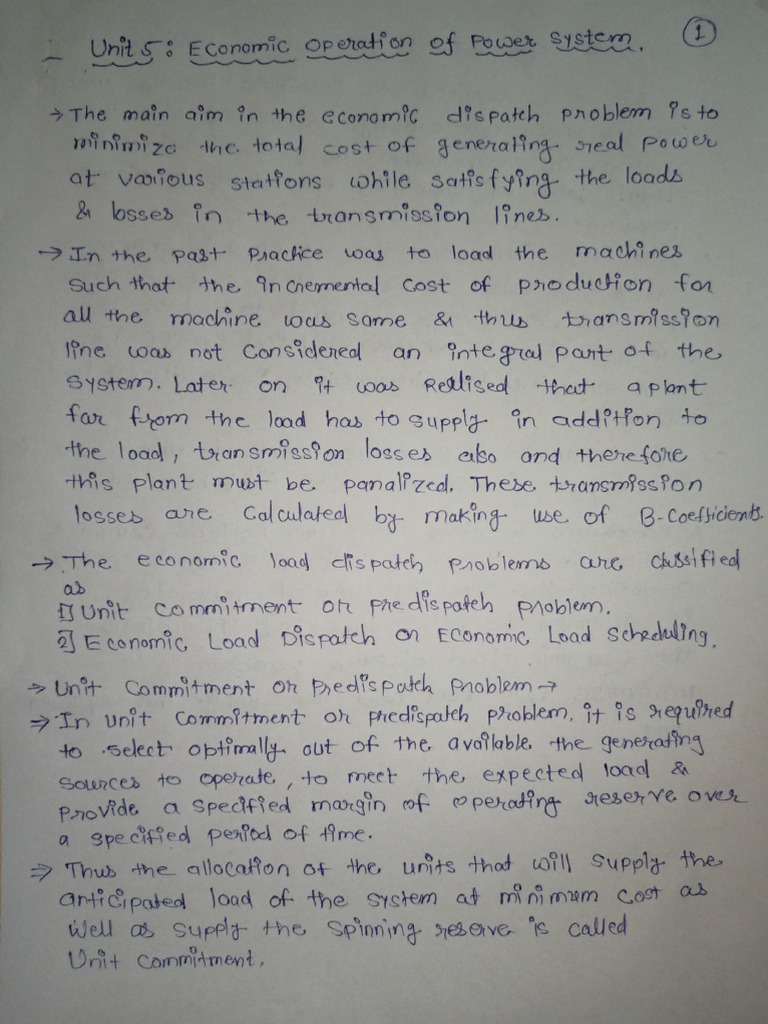 Unit 5: Economic Operation of Power System. 1
→ The main aim in the economic dispatch problem is to
minimize the total cost of generating real power
at various stations while satisfying the loads
& losses in the transmission lines.
→ In the past Practice was to load the machines
such that the incremental cost of production for
all the machine was same & thus transmission
line was not considered an integral part of the
system. Later on it was Realised that a plant
far from the load has to supply in addition to
the load, transmission losses also and therefore
this plant must be panalized. These transmission
losses are calculated by making use of B-Coefficients.
→ The economic load dispatch problems are classified
as
1] Unit Commitment or predispatch problem.
2] Economic Load Dispatch or Economic Load Scheduling.
→ Unit Commitment or Predispatch Problem →
⇒ In unit commitment or predispatch problem, it is required
to select optimally out of the available the generating
sources to operate, to meet the expected load &
provide a specified margin of operating reserve over
a specified period of time.
⇒ Thus the allocation of the units that will supply the
anticipated load of the system at minimum cost as
well as supply the spinning reserve is called
Unit commitment.